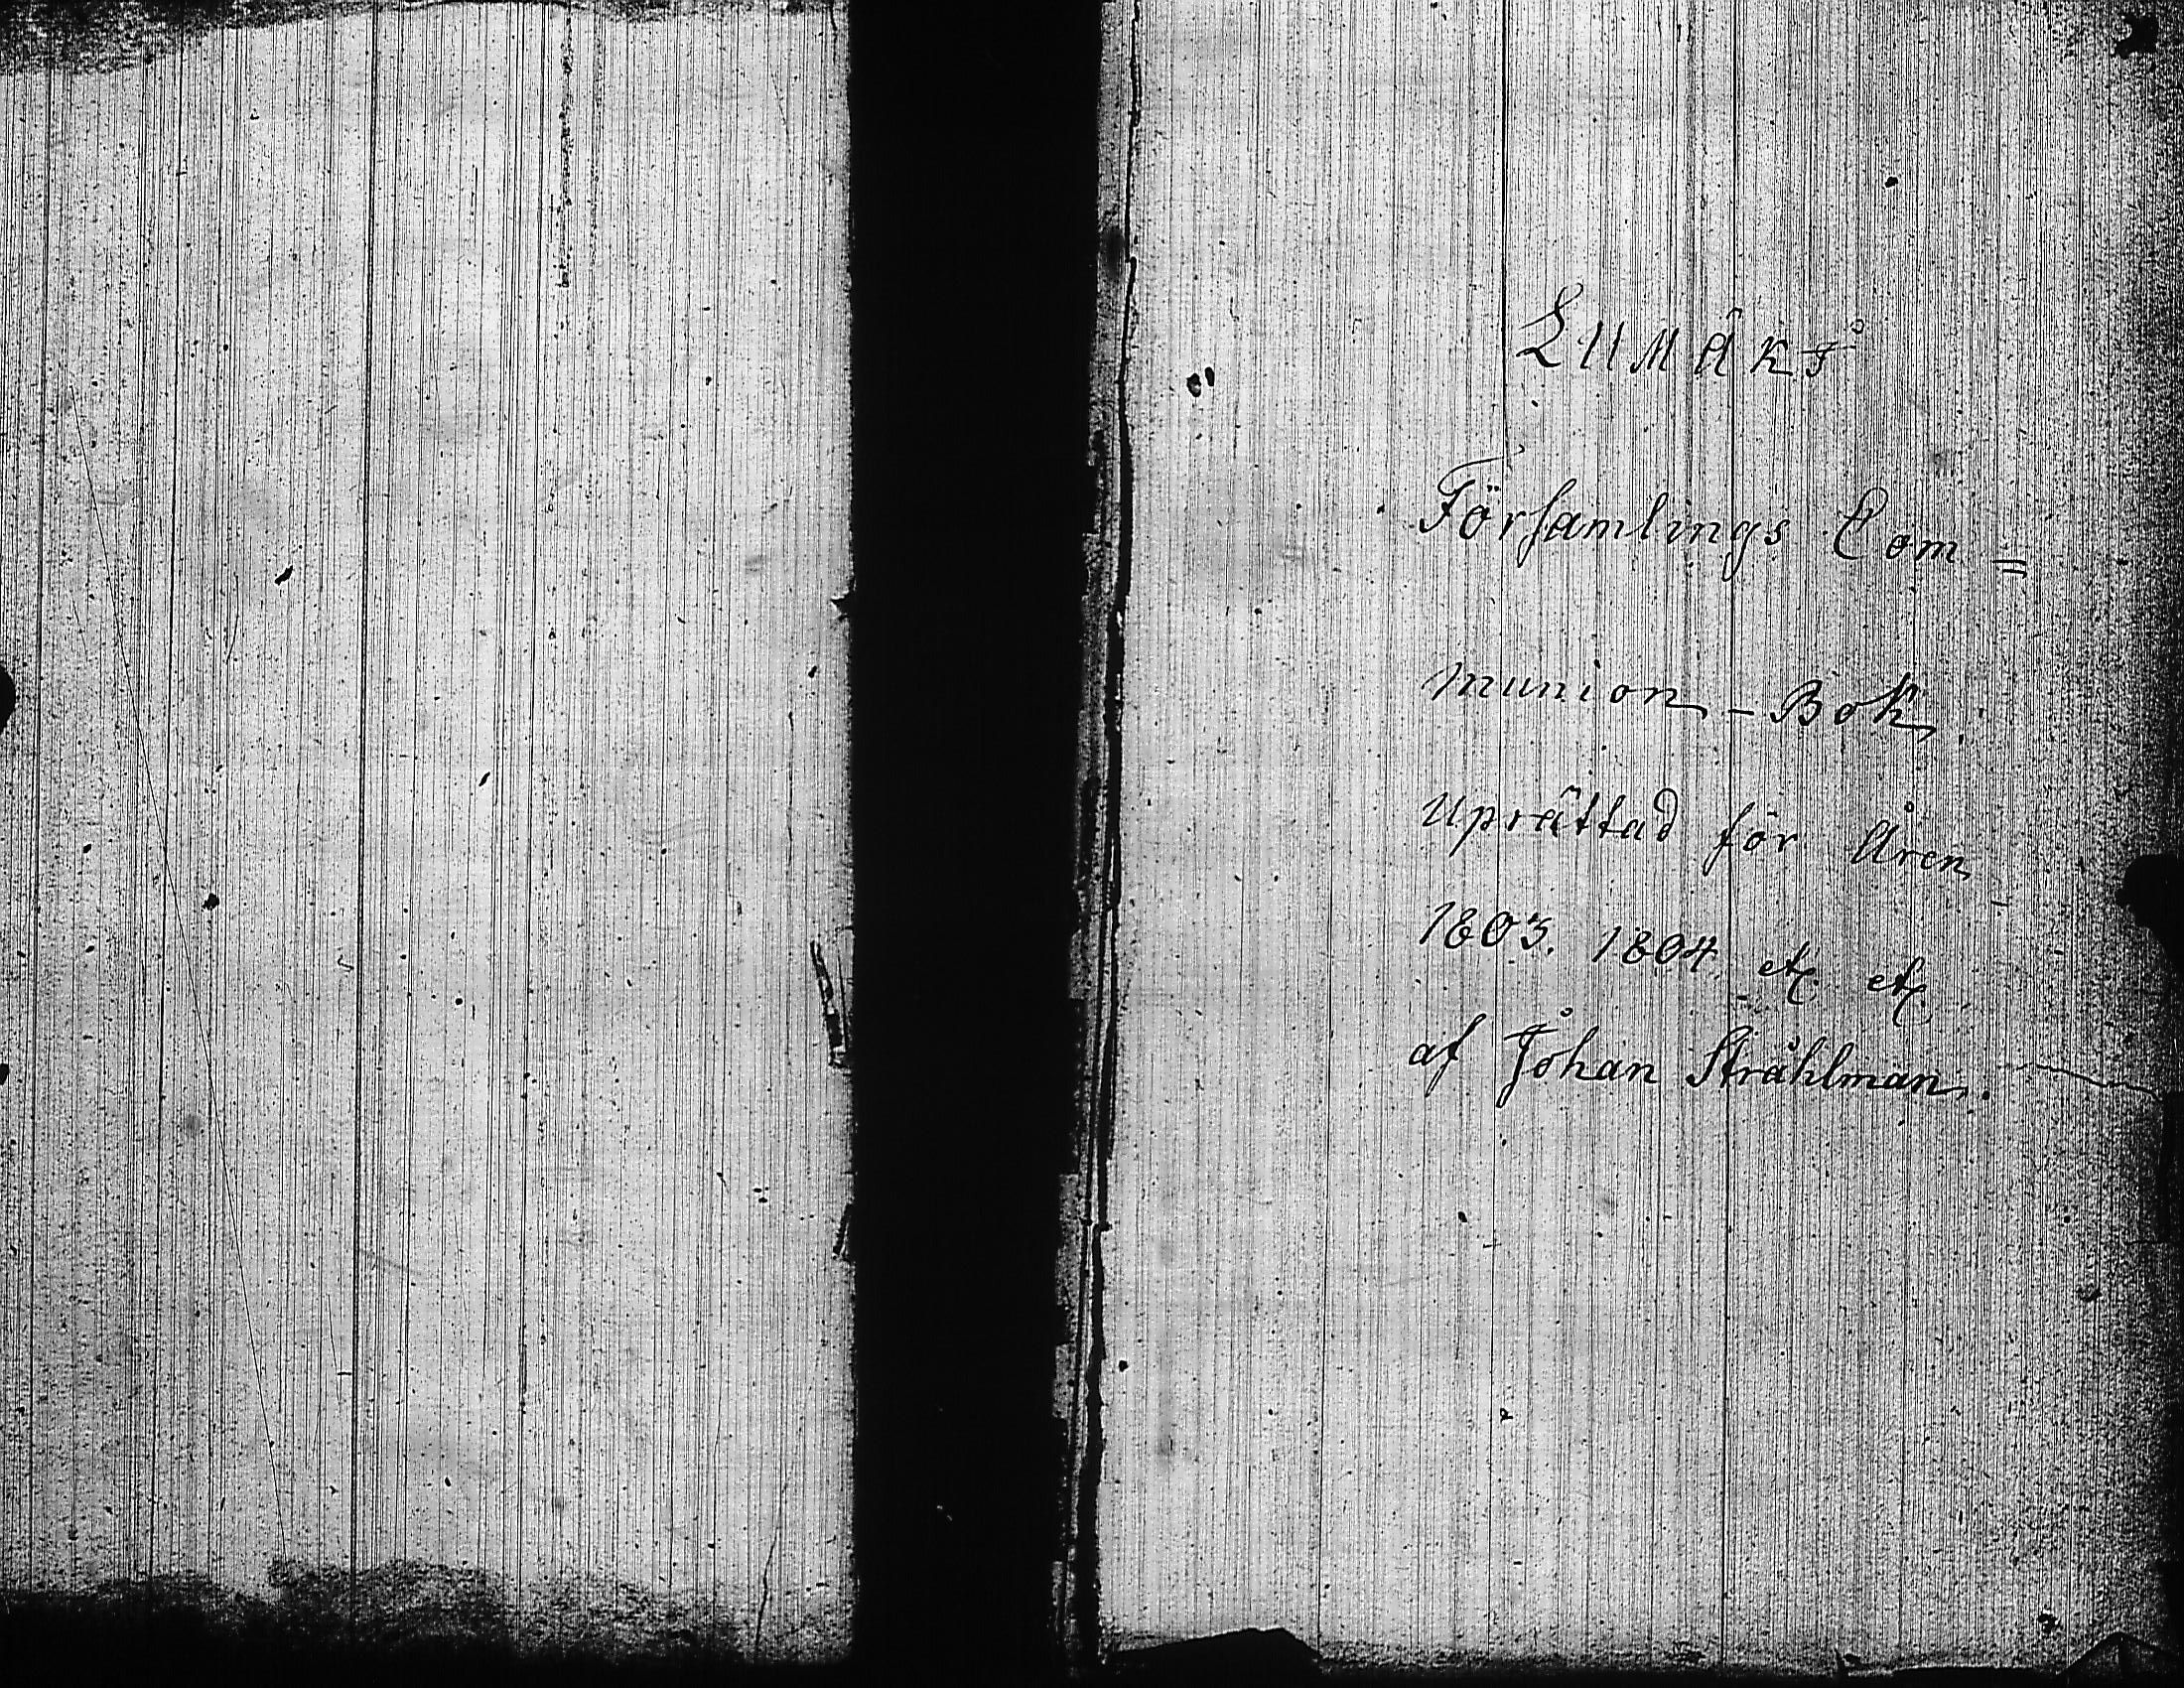 LUMÄKI
Församlings Com=
munion-Bok
Uprättad för Åren
1803. 1804. etc. etc.
af Johan Stråhlman.